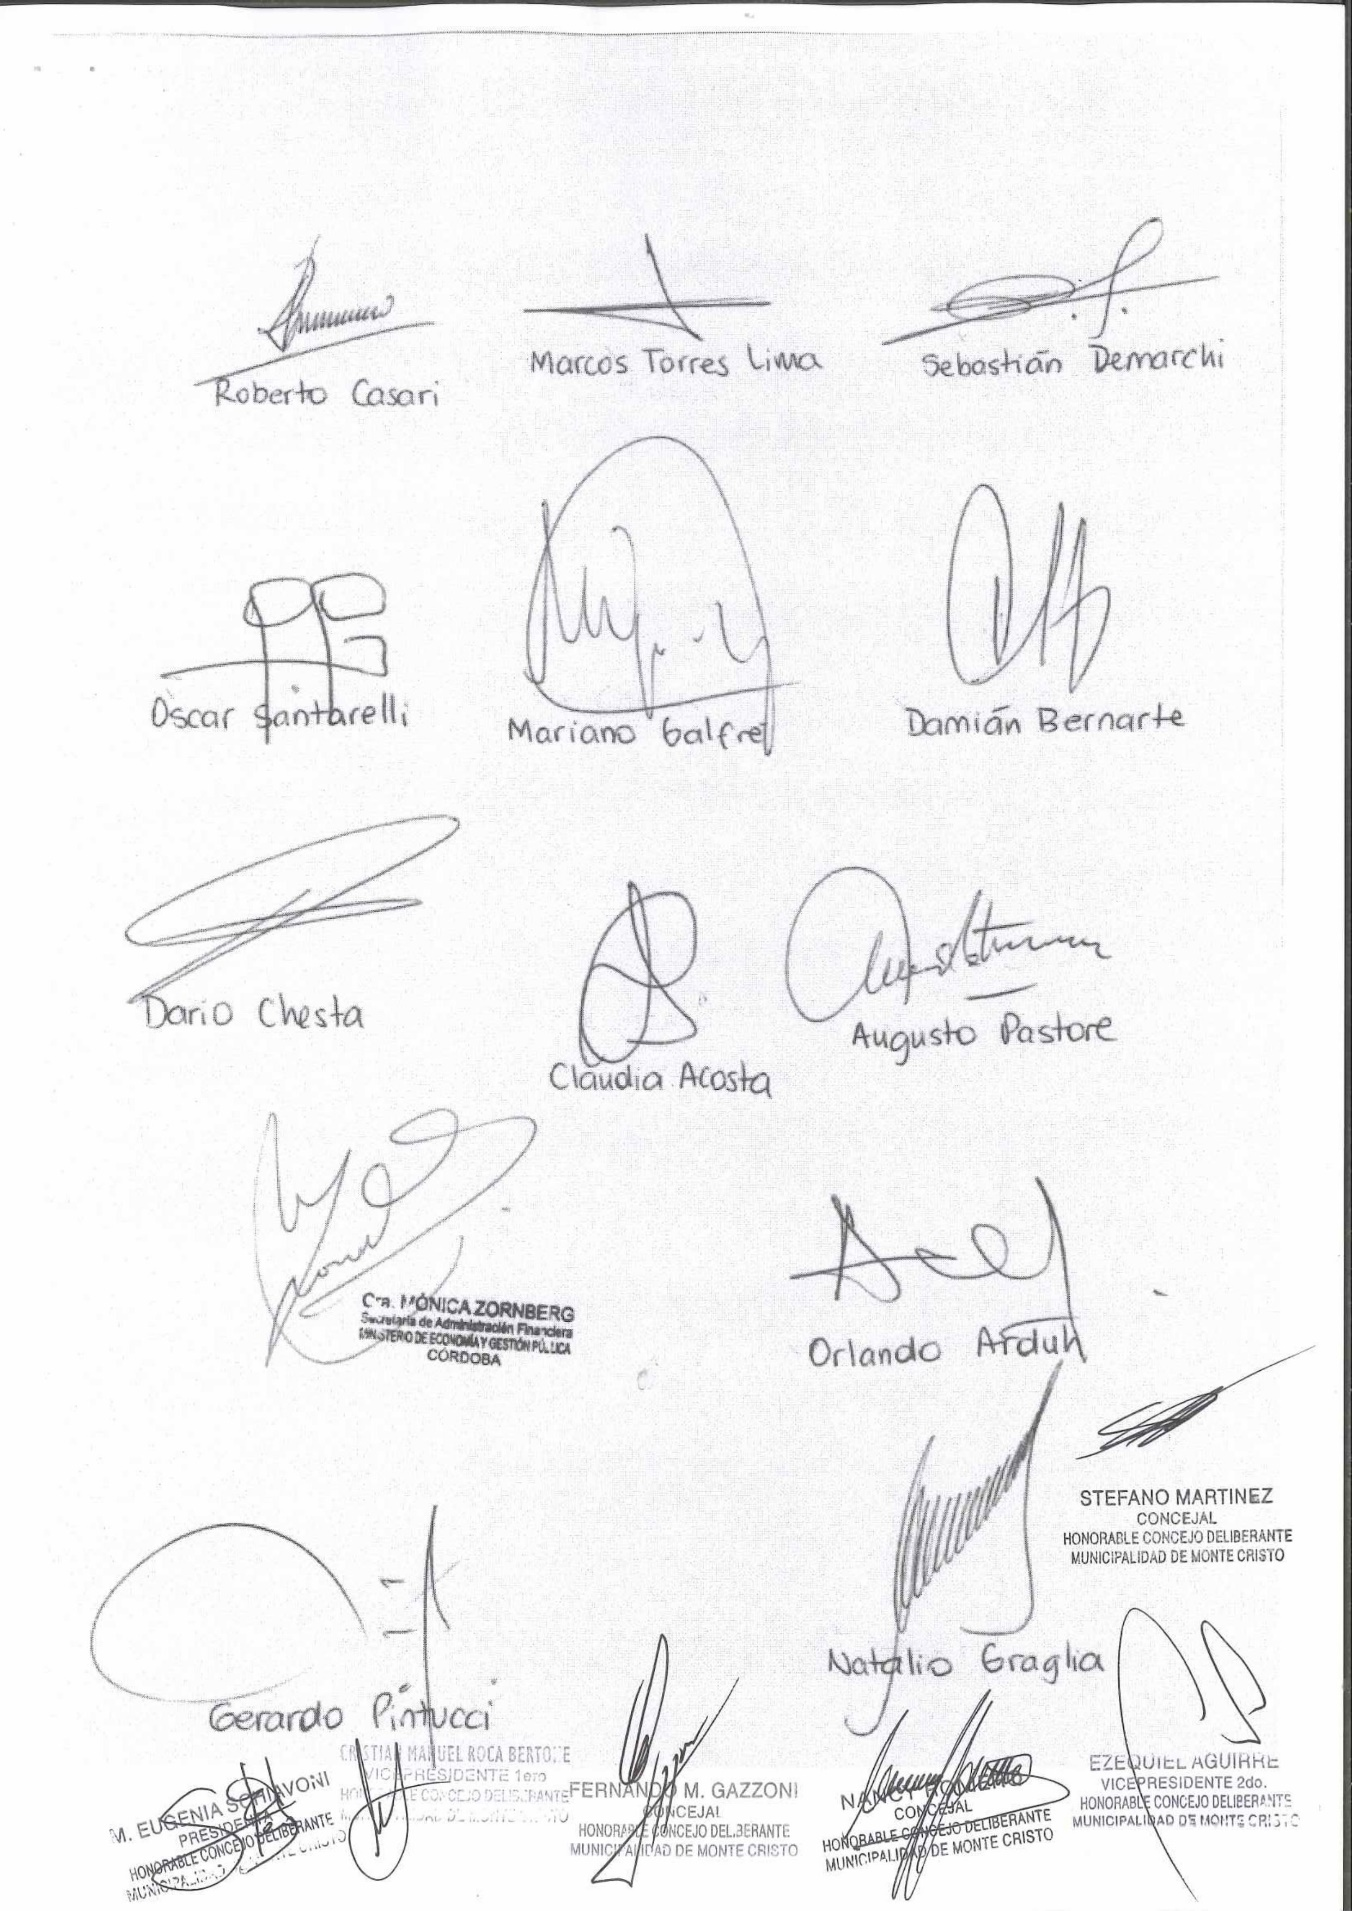 Roberto Casari
Marcos Torres Lima
Sebastián Demarchi
Oscar Santarelli
Mariano Galfré
Damián Bernarte
Dario Chesta
Claudia Acosta
Augusto Pastore
Cra. MÓNICA ZORNBERG
Secretaría de Administración Financiera
MINISTERIO DE ECONOMÍA Y GESTIÓN PÚBLICA
CÓRDOBA
Orlando Arduh
STEFANO MARTINEZ
CONCEJAL
HONORABLE CONCEJO DELIBERANTE
MUNICIPALIDAD DE MONTE CRISTO
Natalio Graglia
Gerardo Pintucci
M. EUGENIA SCHIAVONI
PRESIDENTA
HONORABLE CONCEJO DELIBERANTE
CRISTIAN MANUEL ROCA BERTONE
VICEPRESIDENTE 1ero
HONORABLE CONCEJO DELIBERANTE
FERNANDO M. GAZZONI
CONCEJAL
HONORABLE CONCEJO DELIBERANTE
MUNICIPALIDAD DE MONTE CRISTO
NANCY
CONCEJAL
HONORABLE CONCEJO DELIBERANTE
MUNICIPALIDAD DE MONTE CRISTO
EZEQUIEL AGUIRRE
VICEPRESIDENTE 2do.
HONORABLE CONCEJO DELIBERANTE
MUNICIPALIDAD DE MONTE CRISTO